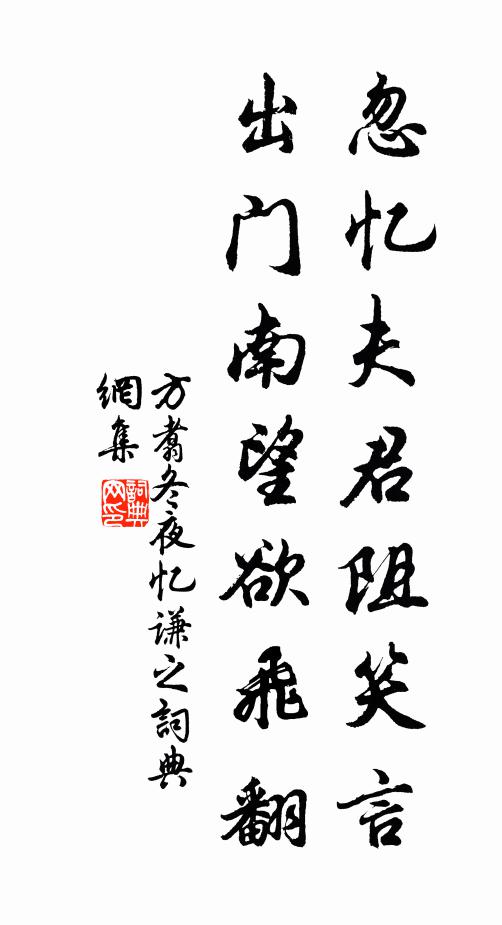 忽忆夫君阻笑言
出门南望欲飛翻
方翥冬夜忆谦之詞典
網集
詞典
网印